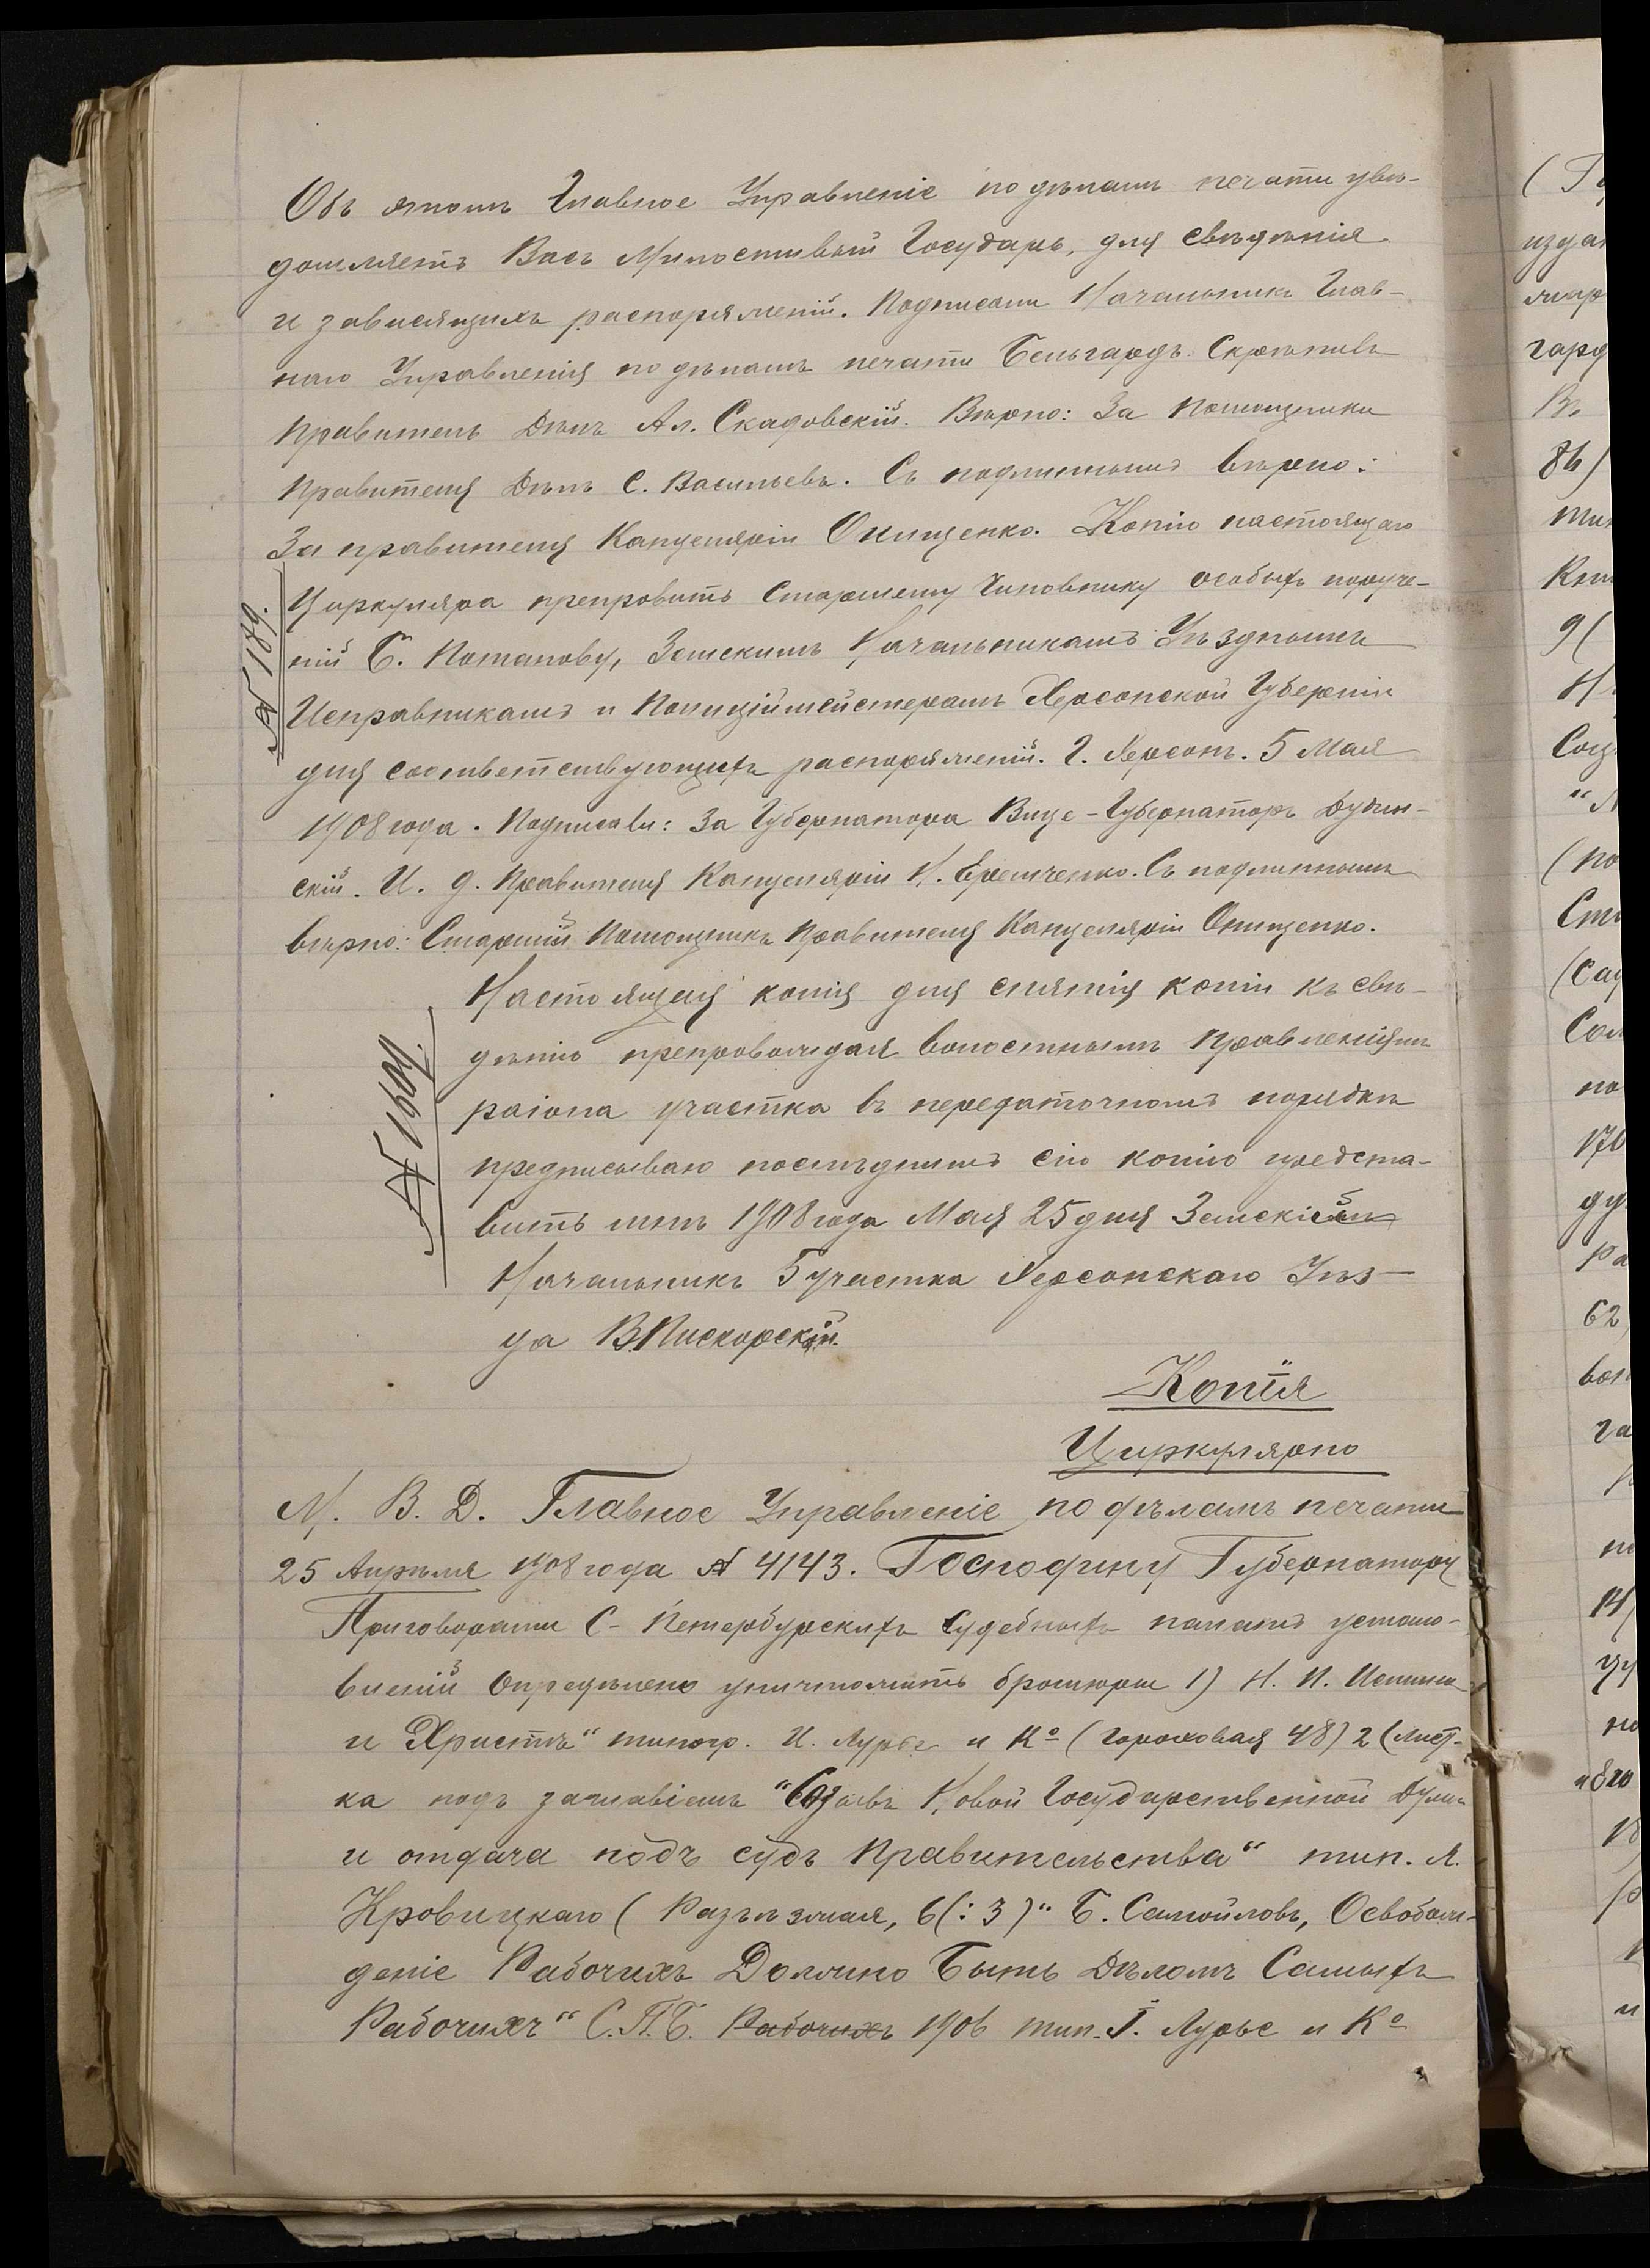 Объ этомъ Главное Управленіе по дѣламъ печати увѣ-
домляетъ Васъ Милостивый Государь, для свѣдѣнія
и зависящихъ распоряженій. Подписали Начальникъ Глав-
наго Управленія по дѣламъ печати Бельгардъ. Скрѣпилъ
Правитель Дѣлъ Ал. Скадовскій. Вѣрно: За Помощника
Правителя Дѣлъ С. Васильевъ. Съ подлиннымъ вѣрно:
За правителя Канцеляріи Онищенко. Копію настоящаго
№ 189.
Циркуляра препровить Старшему Чиновнику особыхъ поруче-
ній Б. Потапову, Земскимъ Начальникамъ Уѣзднымъ
Исправникамъ и Полиціймейстерамъ Херсонской Губерніи
для соответствующихъ распоряженій. Г. Херсонъ. 5 Мая
1908 года. Подписали: За Губернатора Вице-Губернаторъ Дудин-
скій. И. д. Правителя Канцеляріи Н. Еремченко. Съ подлиннымъ
вѣрно: Старшій Помощникъ Правителя Канцеляріи Онищенко.
Настоящая копія для снятія копіи къ свѣ-
дѣнію препровождая волостнымъ Правленіямъ
раіона участка въ передаточномъ порядкѣ
предписываю послѣднимъ сію копію предста-
вить мнѣ 1908 года Мая 25 дня Земскій
Начальникъ 5 участка Херсонскаго Уѣз-
да В. Пискорскій.
Копія
Циркулярно
М. В. Д. Главное Управленіе по дѣламъ печати
25 Апрѣля 1908 года № 4143. Господину Губернатору
Приговорами С-Петербурскихъ Судебныхъ палатъ устано-
вленій опредѣлено уничтожить брошюры 1) Н. И.
и Христъ" типогр. И. Лурье и Кº (Гороховая 48) 2 (лист-
ка подъ заглавіемъ "Созывъ Новой Государственной Думы
и отдача подъ судъ Правительства" тип. Я.
Кровицкаго (Разъѣзжая, 6(: 3)" Б. Самойловъ, Освобож-
деніе Рабочихъ Должно Быть Дѣломъ Самыхъ
Рабочихъ" С.П.Б. Рабочихъ 1906 тип. I. Лурье и Кº